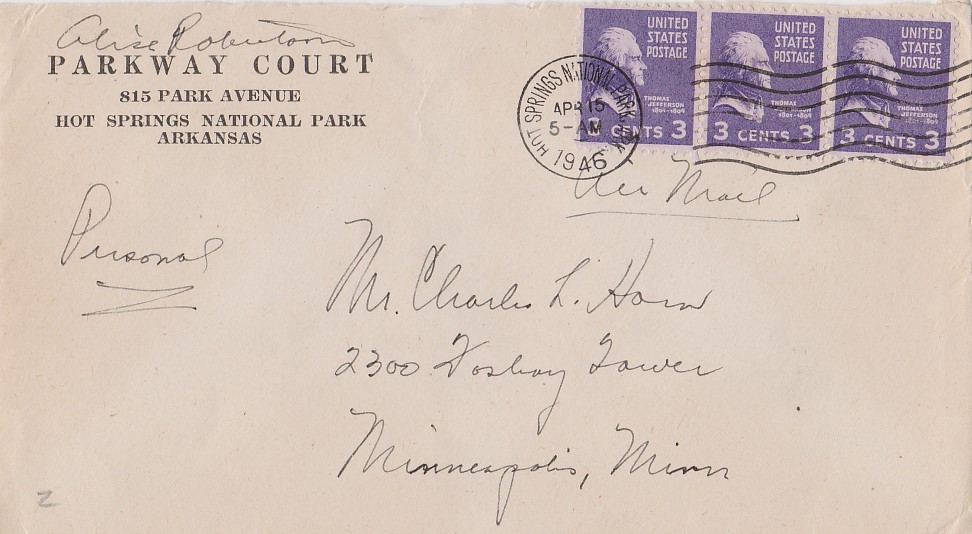 Alise Robertson
PARKWAY COURT
815 PARK AVENUE
HOT SPRINGS NATIONAL PARK
ARKANSAS
UNITED STATES POSTAGE
THOMAS JEFFERSON
1801-1809
3 CENTS 3
UNITED STATES POSTAGE
THOMAS JEFFERSON
1801-1809
3 CENTS 3
UNITED STATES POSTAGE
THOMAS JEFFERSON
1801-1809
3 CENTS 3
HOT SPRINGS NATIONAL PARK ARK.
APR 15
5-AM
1946
Air Mail
Personal
Mr. Charles L. Horn
2300 Foshay Tower
Minneapolis, Minn
Z